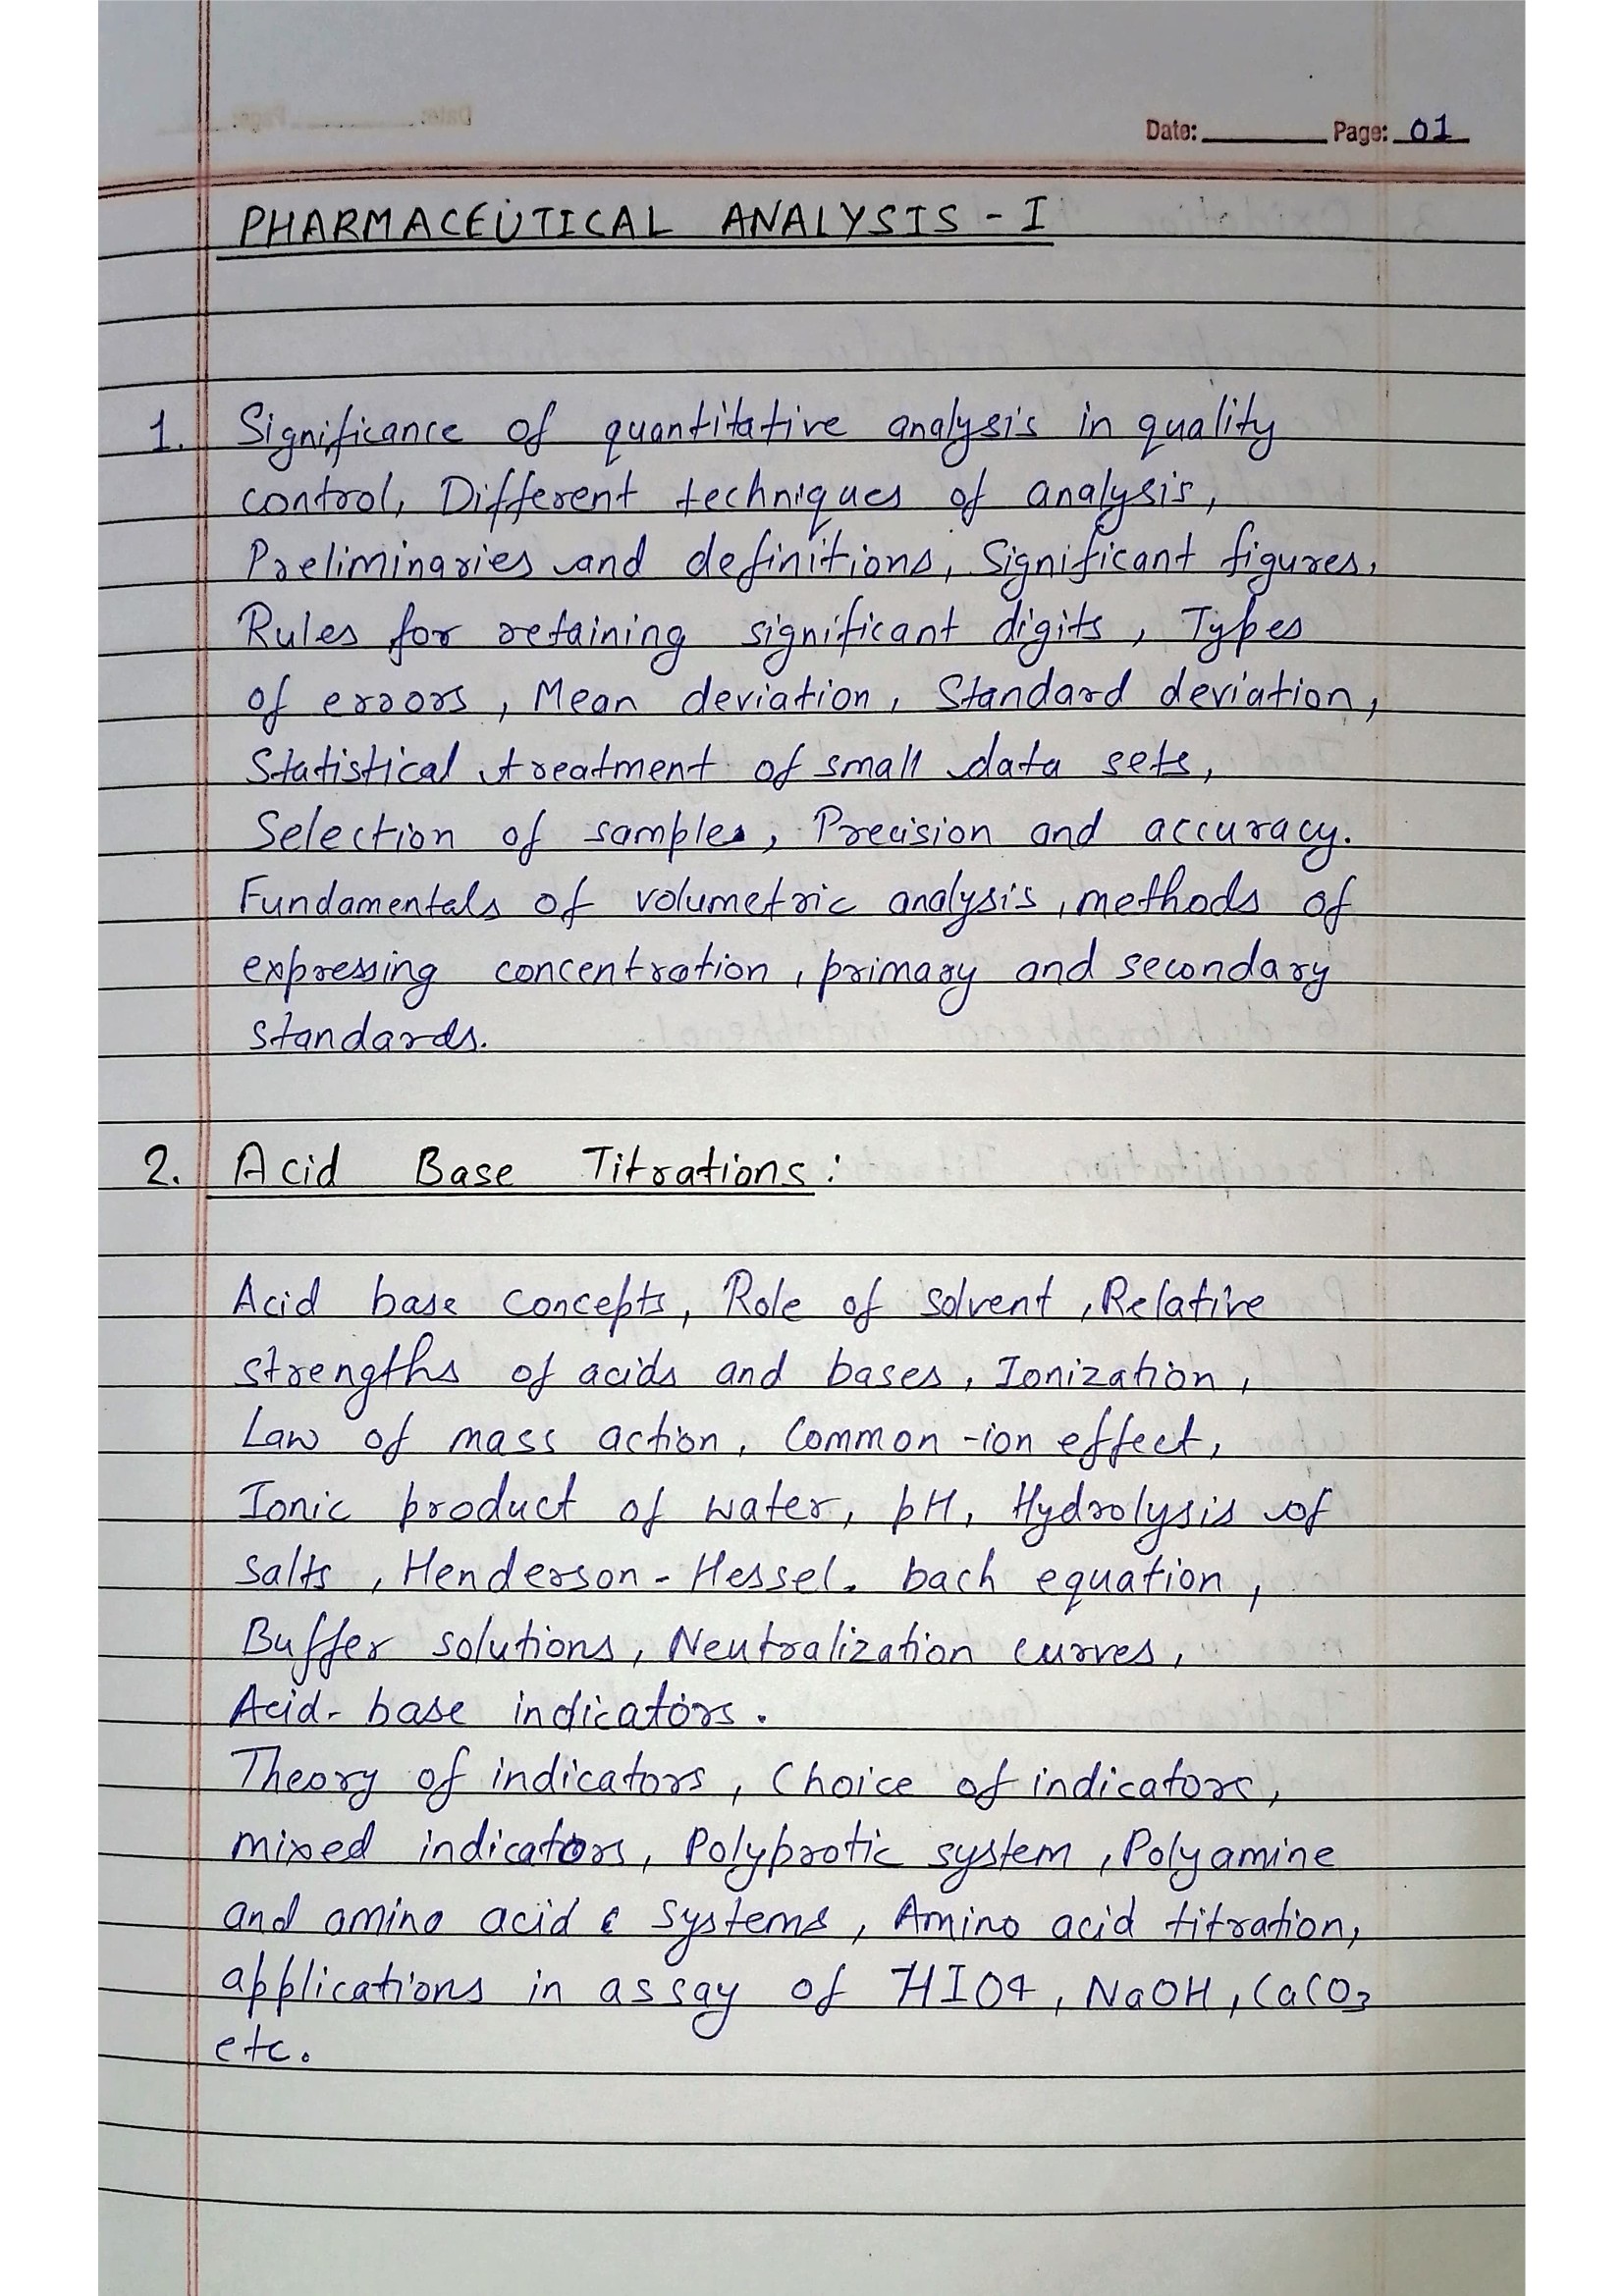 Date: Page: 01
PHARMACEUTICAL ANALYSIS - I
1. Significance of quantitative analysis in quality
control, Different techniques of analysis,
Preliminaries and definitions, Significant figures,
Rules for retaining significant digits, Types
of errors, Mean deviation, Standard deviation,
Statistical treatment of small data sets,
Selection of samples, Precision and accuracy.
Fundamentals of volumetric analysis, methods of
expressing concentration, primary and secondary
standards.
2. Acid Base Titrations:
Acid base concepts, Role of solvent, Relative
strengths of acids and bases, Ionization,
Law of mass action, Common-ion effect,
Ionic product of water, pH, Hydrolysis of
salts, Henderson-Hessel. bach equation,
Buffer solutions, Neutralization curves,
Acid-base indicators.
Theory of indicators, Choice of indicators,
mixed indicators, Polyprotic system, Polyamine
and amino acid systems, Amino acid titration,
applications in assay of HIO4, NaOH, CaCO3
etc.